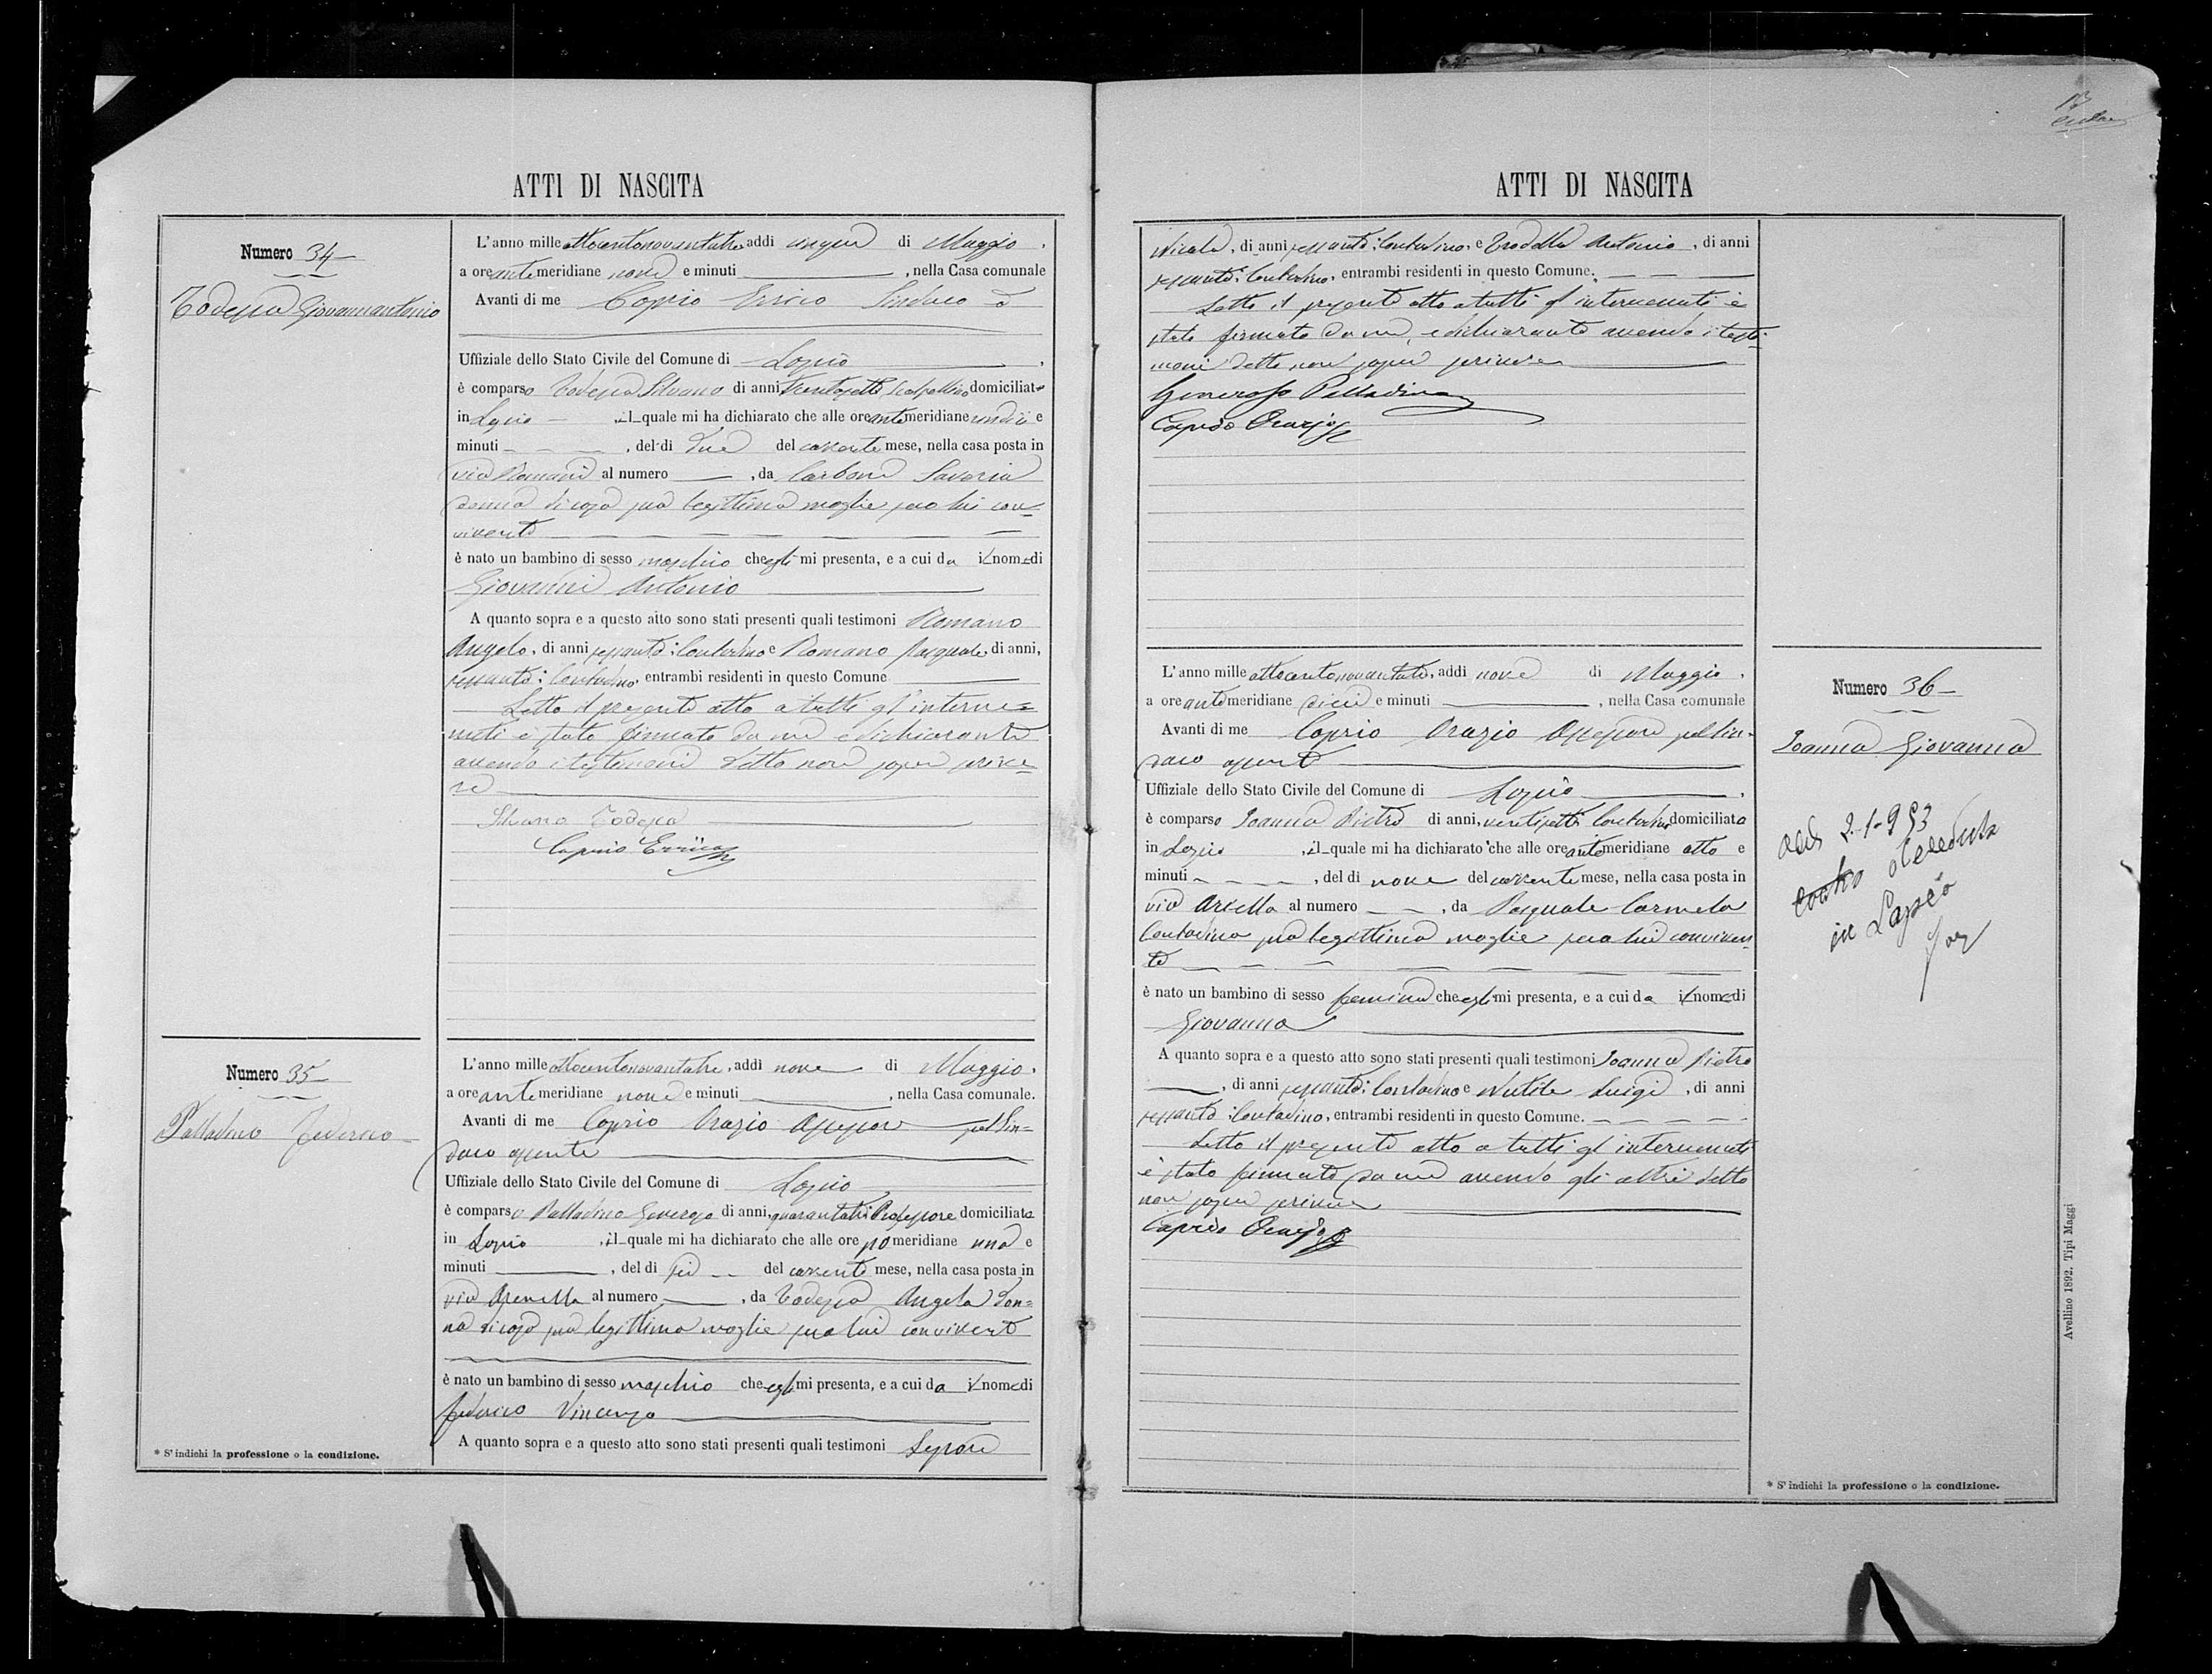 ATTI DI NASCITA
Numero 34
Todesca Giovannantonio
L'anno mille ottocentonovantatre addì cinque di Maggio,
a ore ante meridiane nove e minuti , nella Casa comunale
Avanti di me Caprio Errico Sindaco
Uffiziale dello Stato Civile del Comune di Lapio,
è comparso Todesca Silvano di anni trentasette, scalpellino domiciliato
in Lapio, il quale mi ha dichiarato che alle ore ante meridiane undici e
minuti , del dì due del corrente mese, nella casa posta in
via Romani al numero , da Carbone Saveria
donna di casa sua legittima moglie seco lui con=
vivente
è nato un bambino di sesso maschio che egli mi presenta, e a cui da il nome di
Giovanni Antonio
A quanto sopra e a questo atto sono stati presenti quali testimoni Romano
Angelo, di anni sessanta: Contadino e Romano Pasquale di anni,
sessanta: Contadino, entrambi residenti in questo Comune
Letto il presente atto a tutti gl'interve=
nuti è stato firmato da me e dichiarante
avendo i testimoni detto non saper scrive=
re
Silvano Todesca
Caprio Errico
Numero 35
Palladino Federico
L'anno mille ottocentonovantatre, addì nove di Maggio,
a ore ante meridiane nove e minuti , nella Casa comunale.
Avanti di me Caprio Orazio Assessore pel Sin=
daco assente
Uffiziale dello Stato Civile del Comune di Lapio
è comparso Palladino Generoso di anni, quarantatre Professore domiciliato
in Lapio, il quale mi ha dichiarato che alle ore po meridiane una e
minuti , del dì sei del corrente mese, nella casa posta in
via Arenella al numero , da Todesca Angela don=
na di casa sua legittima moglie seco lui convivente
è nato un bambino di sesso maschio che egli mi presenta, e a cui da il nome di
Federico Vincenzo
A quanto sopra e a questo atto sono stati presenti quali testimoni Lepore
* S'indichi la professione o la condizione.
13
ATTI DI NASCITA
Nicola, di anni sessanta: Contadino, e Antonio, di anni
sessanta: Contadino, entrambi residenti in questo Comune.
Letto il presente atto a tutti gl'intervenuti è
stato firmato da me, e dichiarante avendo i testi=
moni detto non saper scrivere
Generoso Palladino
Caprio Orazio
Numero 36
Ioanna Giovanna
L'anno mille ottocentonovantatre, addì nove di Maggio,
a ore ante meridiane dieci e minuti , nella Casa comunale
Avanti di me Caprio Orazio Assessore pel Sin=
daco assente
Uffiziale dello Stato Civile del Comune di Lapio,
è comparso Ioanna Pietro di anni, ventisette Contadino domiciliato
in Lapio, il quale mi ha dichiarato che alle ore ante meridiane otto e
minuti , del dì nove del corrente mese, nella casa posta in
via Arella al numero , da Pasquale Carmela
Contadina sua legittima moglie seco lui conviven=
te
è nato un bambino di sesso femina che egli mi presenta, e a cui da il nome di
Giovanna
A quanto sopra e a questo atto sono stati presenti quali testimoni Ioanna Pietro
, di anni sessanta: Contadino e Nutile Luigi, di anni
sessanta: Contadino, entrambi residenti in questo Comune.
Letto il presente atto a tutti gl'intervenuti
è stato firmato da me avendo gli altri detto
non saper scrivere
Caprio Orazio
2-1-953
deceduta
in Lapio
* S'indichi la professione o la condizione.
Avellino 1892. Tipi Maggi